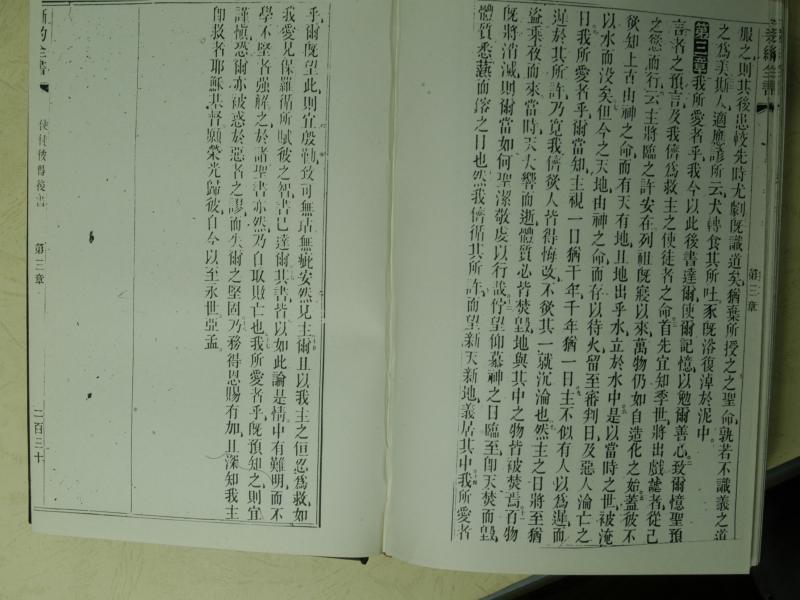 服之則其後患較先時尤劇旣識道矣猶棄所授之之聖命孰若不識義之道
之爲美斯人適應諺所云犬轉食其所吐豕旣浴復淖於泥中
第三章我所愛者乎我今以此後書達爾使爾記憶以勉爾善心致爾憶聖預
言者之預言及我儕爲救主之使徒者之命首先宜知季世將出戲謔者從己
之慾而行云主將臨之許安在列祖旣寢以來萬物仍如自造化之始蓋彼不
欲知上古由神之命而有天有地且地出乎水立於水中是以當時之世被淹
以水而没矣但今之天地由神之命而存以待火留至審判日及惡人淪亡之
日我所愛者乎爾當知主視一日猶千年千年猶一日主不似有人以爲遲而
遲於其所許乃寬我儕欲人皆得悔改不欲其一就沉淪也然主之日將至猶
盜乘夜而來當時天大響而逝體質必皆焚毀地與其中之物皆被焚焉百物
旣將消滅則爾當如何聖潔敬虔以行哉佇望仰慕神之日臨至卽天焚而毀
體質悉爇而鎔之日也然我儕循其所許而望新天新地義居其中我所愛者
第三章
乎爾旣望此則宜殷勤致可無玷無疵安然見主爾且以我主之恒忍爲救如
我愛兄保羅循所賦彼之智書已達爾其書皆以如此論是情中有難明而不
學不堅者強解之於諸聖書亦然乃自取敗亡也我所愛者乎旣預知之則宜
謹愼恐爾亦被惑於惡者之謬而失爾之堅固乃務得恩賜有加且深知我主
卽救者耶穌基督願榮光歸彼自今以至永世亞孟
新約全書
使徒彼得後書
第三章
二百三十